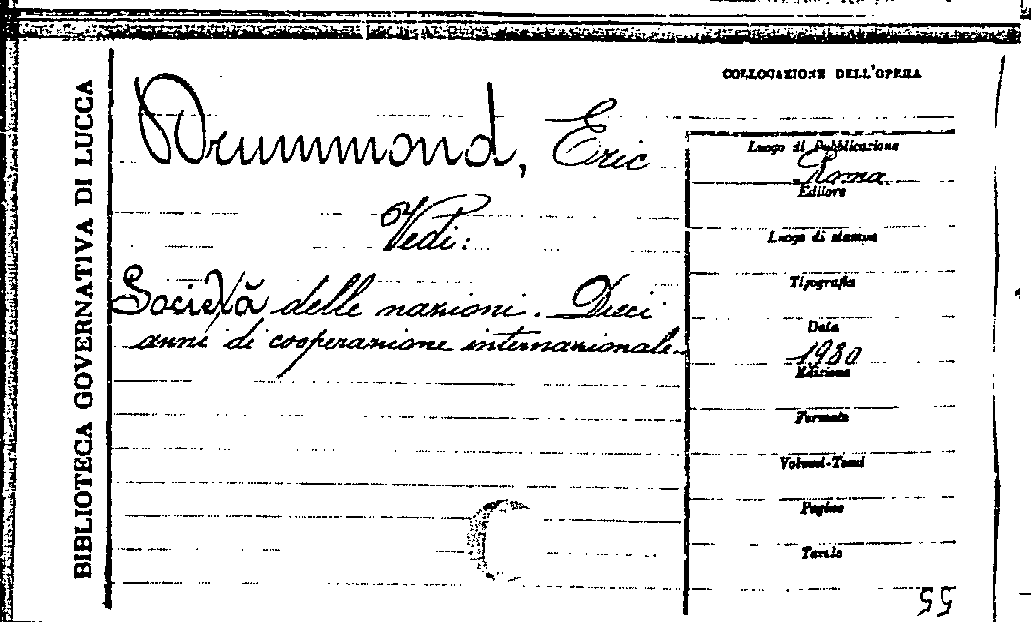 BIBLIOTECA GOVERNATIVA DI LUCCA
Drummond, Eric
Vedi:
Società delle nazioni. Dieci
anni di cooperazione internazionale.
COLLOCAZIONE DELL'OPERA
Luogo di Pubblicazione
Roma
Editore
Luogo di stampa
Tipografia
Data
1930
Edizione
Formato
Volumi-Tomi
Pagine
Tavole
55